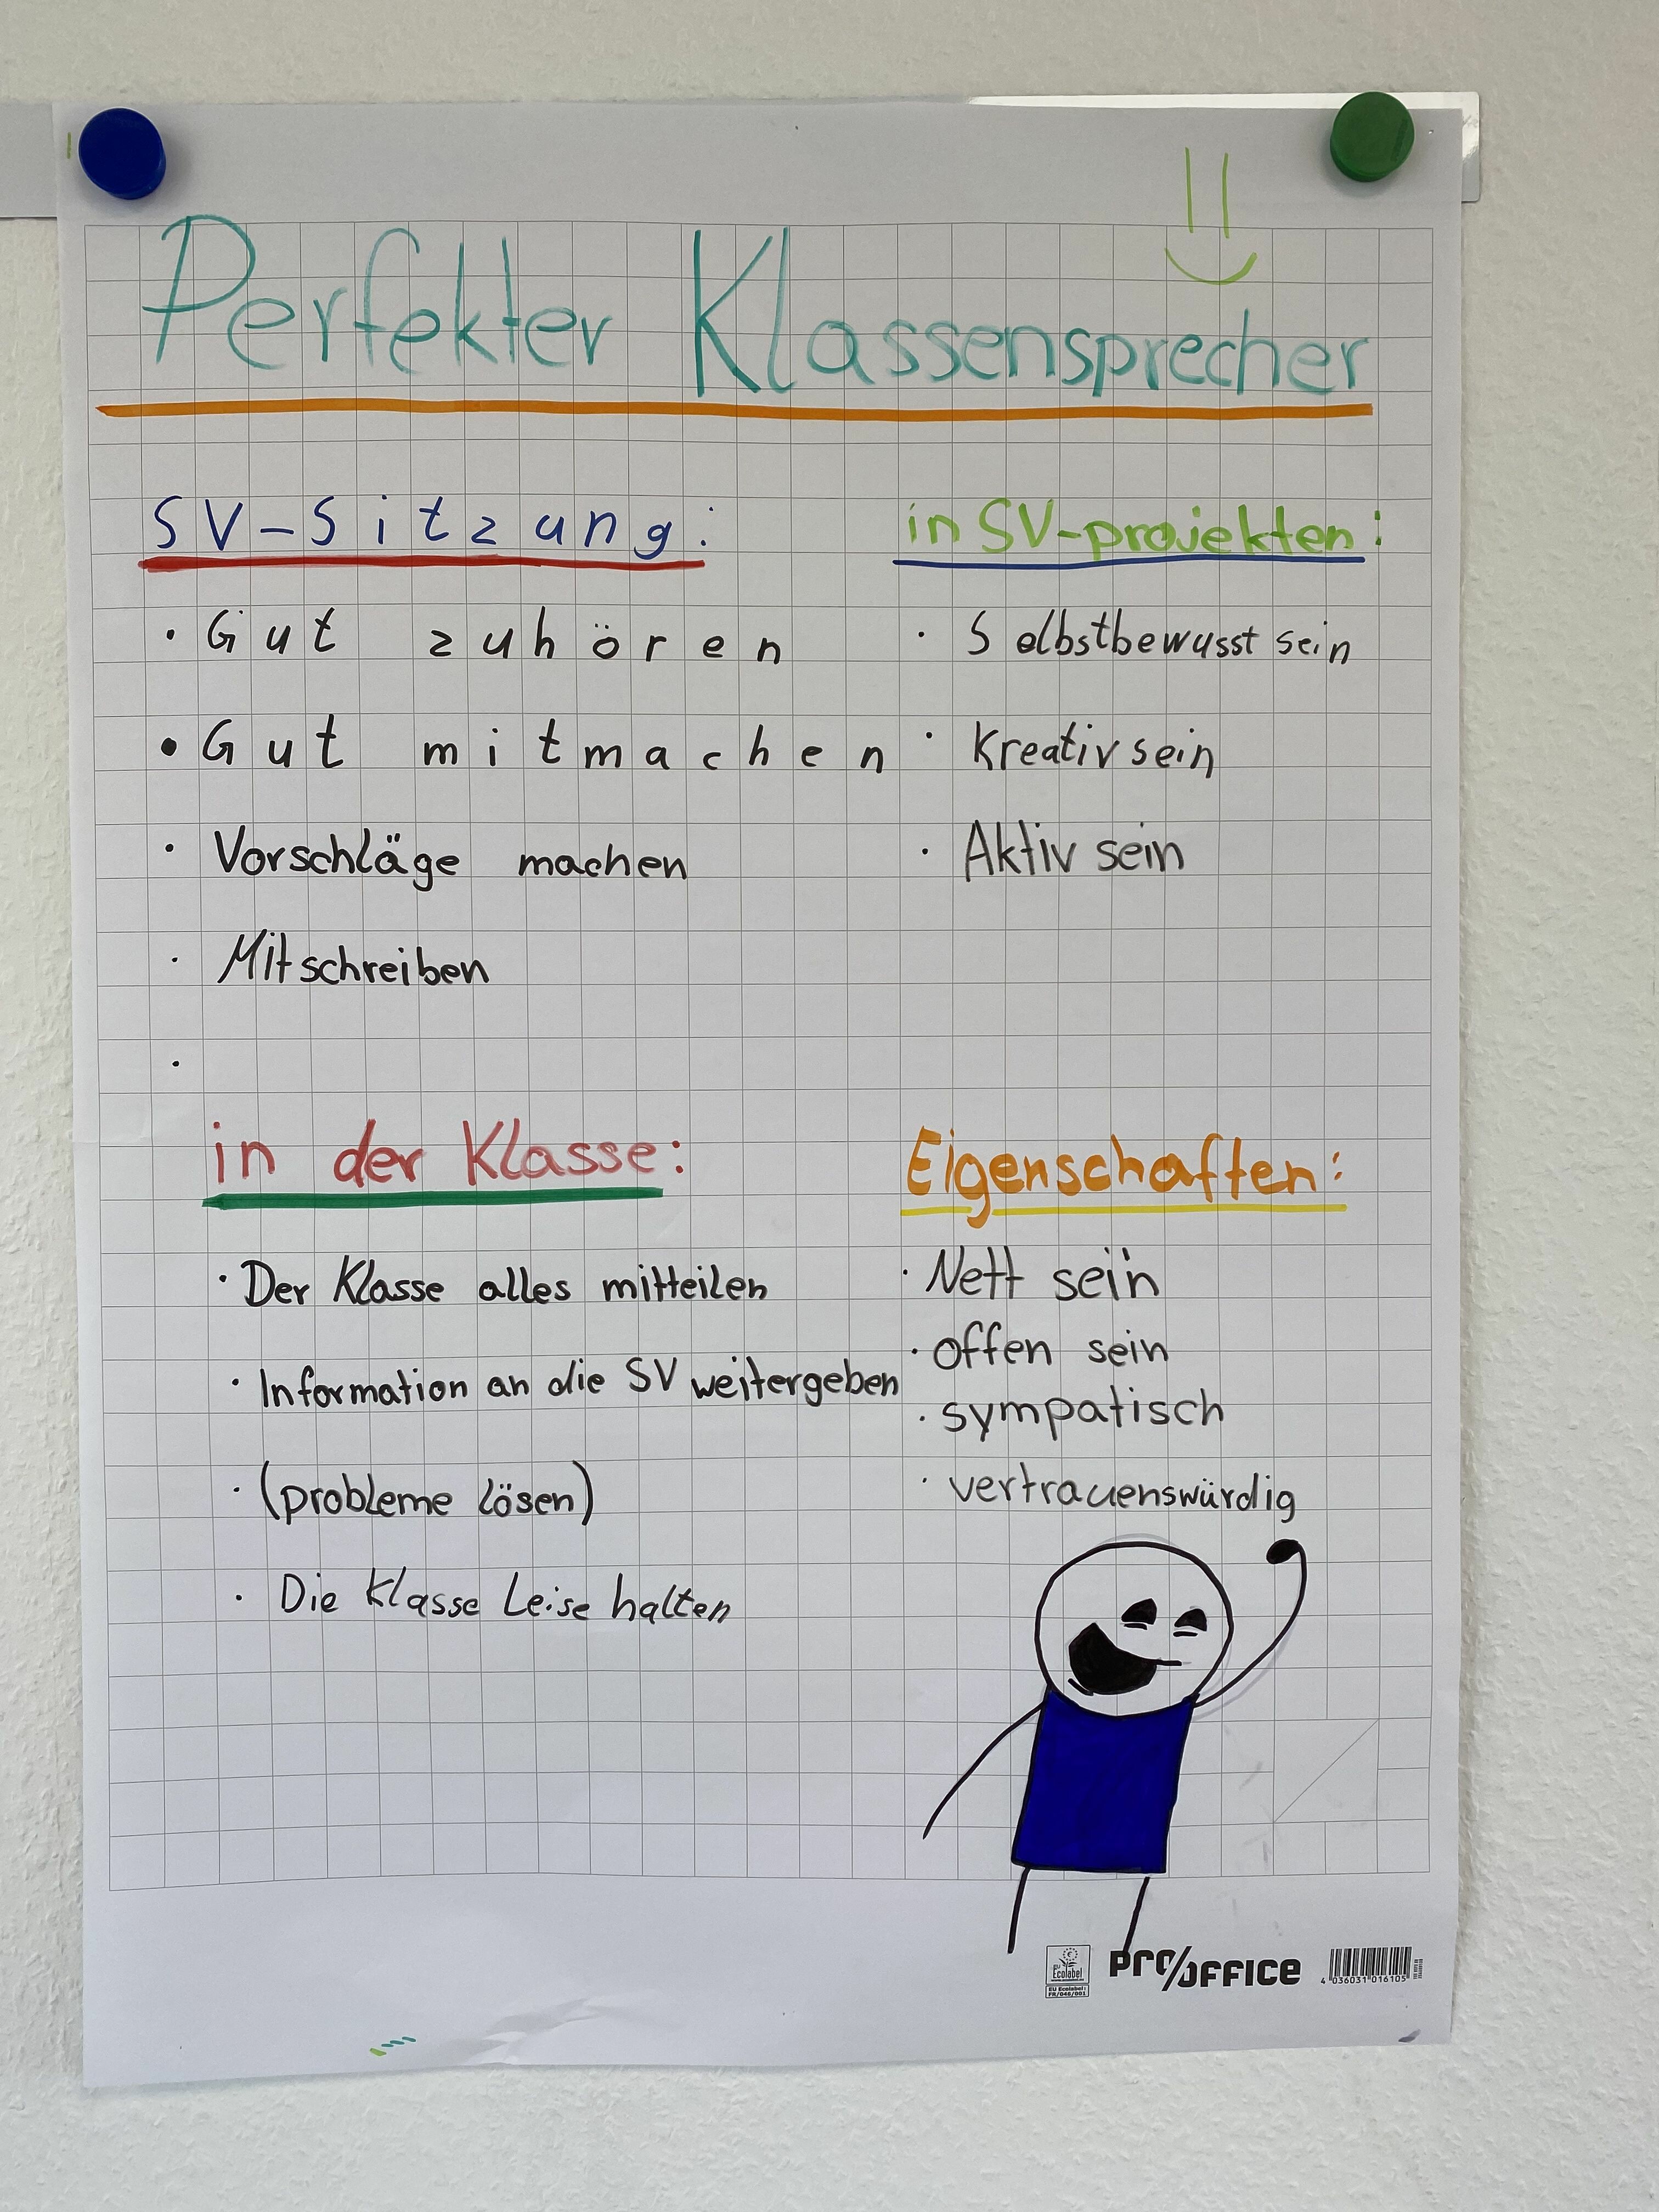 Perfekter Klassensprecher
SV-Sitzung:
· Gut zuhören
· Gut mitmachen
· Vorschläge machen
· Mitschreiben
·
in SV-projekten:
· Selbstbewusst sein
· Kreativ sein
· Aktiv sein
in der Klasse:
· Der Klasse alles mitteilen
· Information an die SV weitergeben
· (probleme lösen)
· Die Klasse Leise halten
Eigenschaften:
· Nett sein
· offen sein
· sympatisch
· vertrauenswürdig
EU
Ecolabel
EU Ecolabel :
FR/046/001
PRO/OFFICE
4 036031 016105